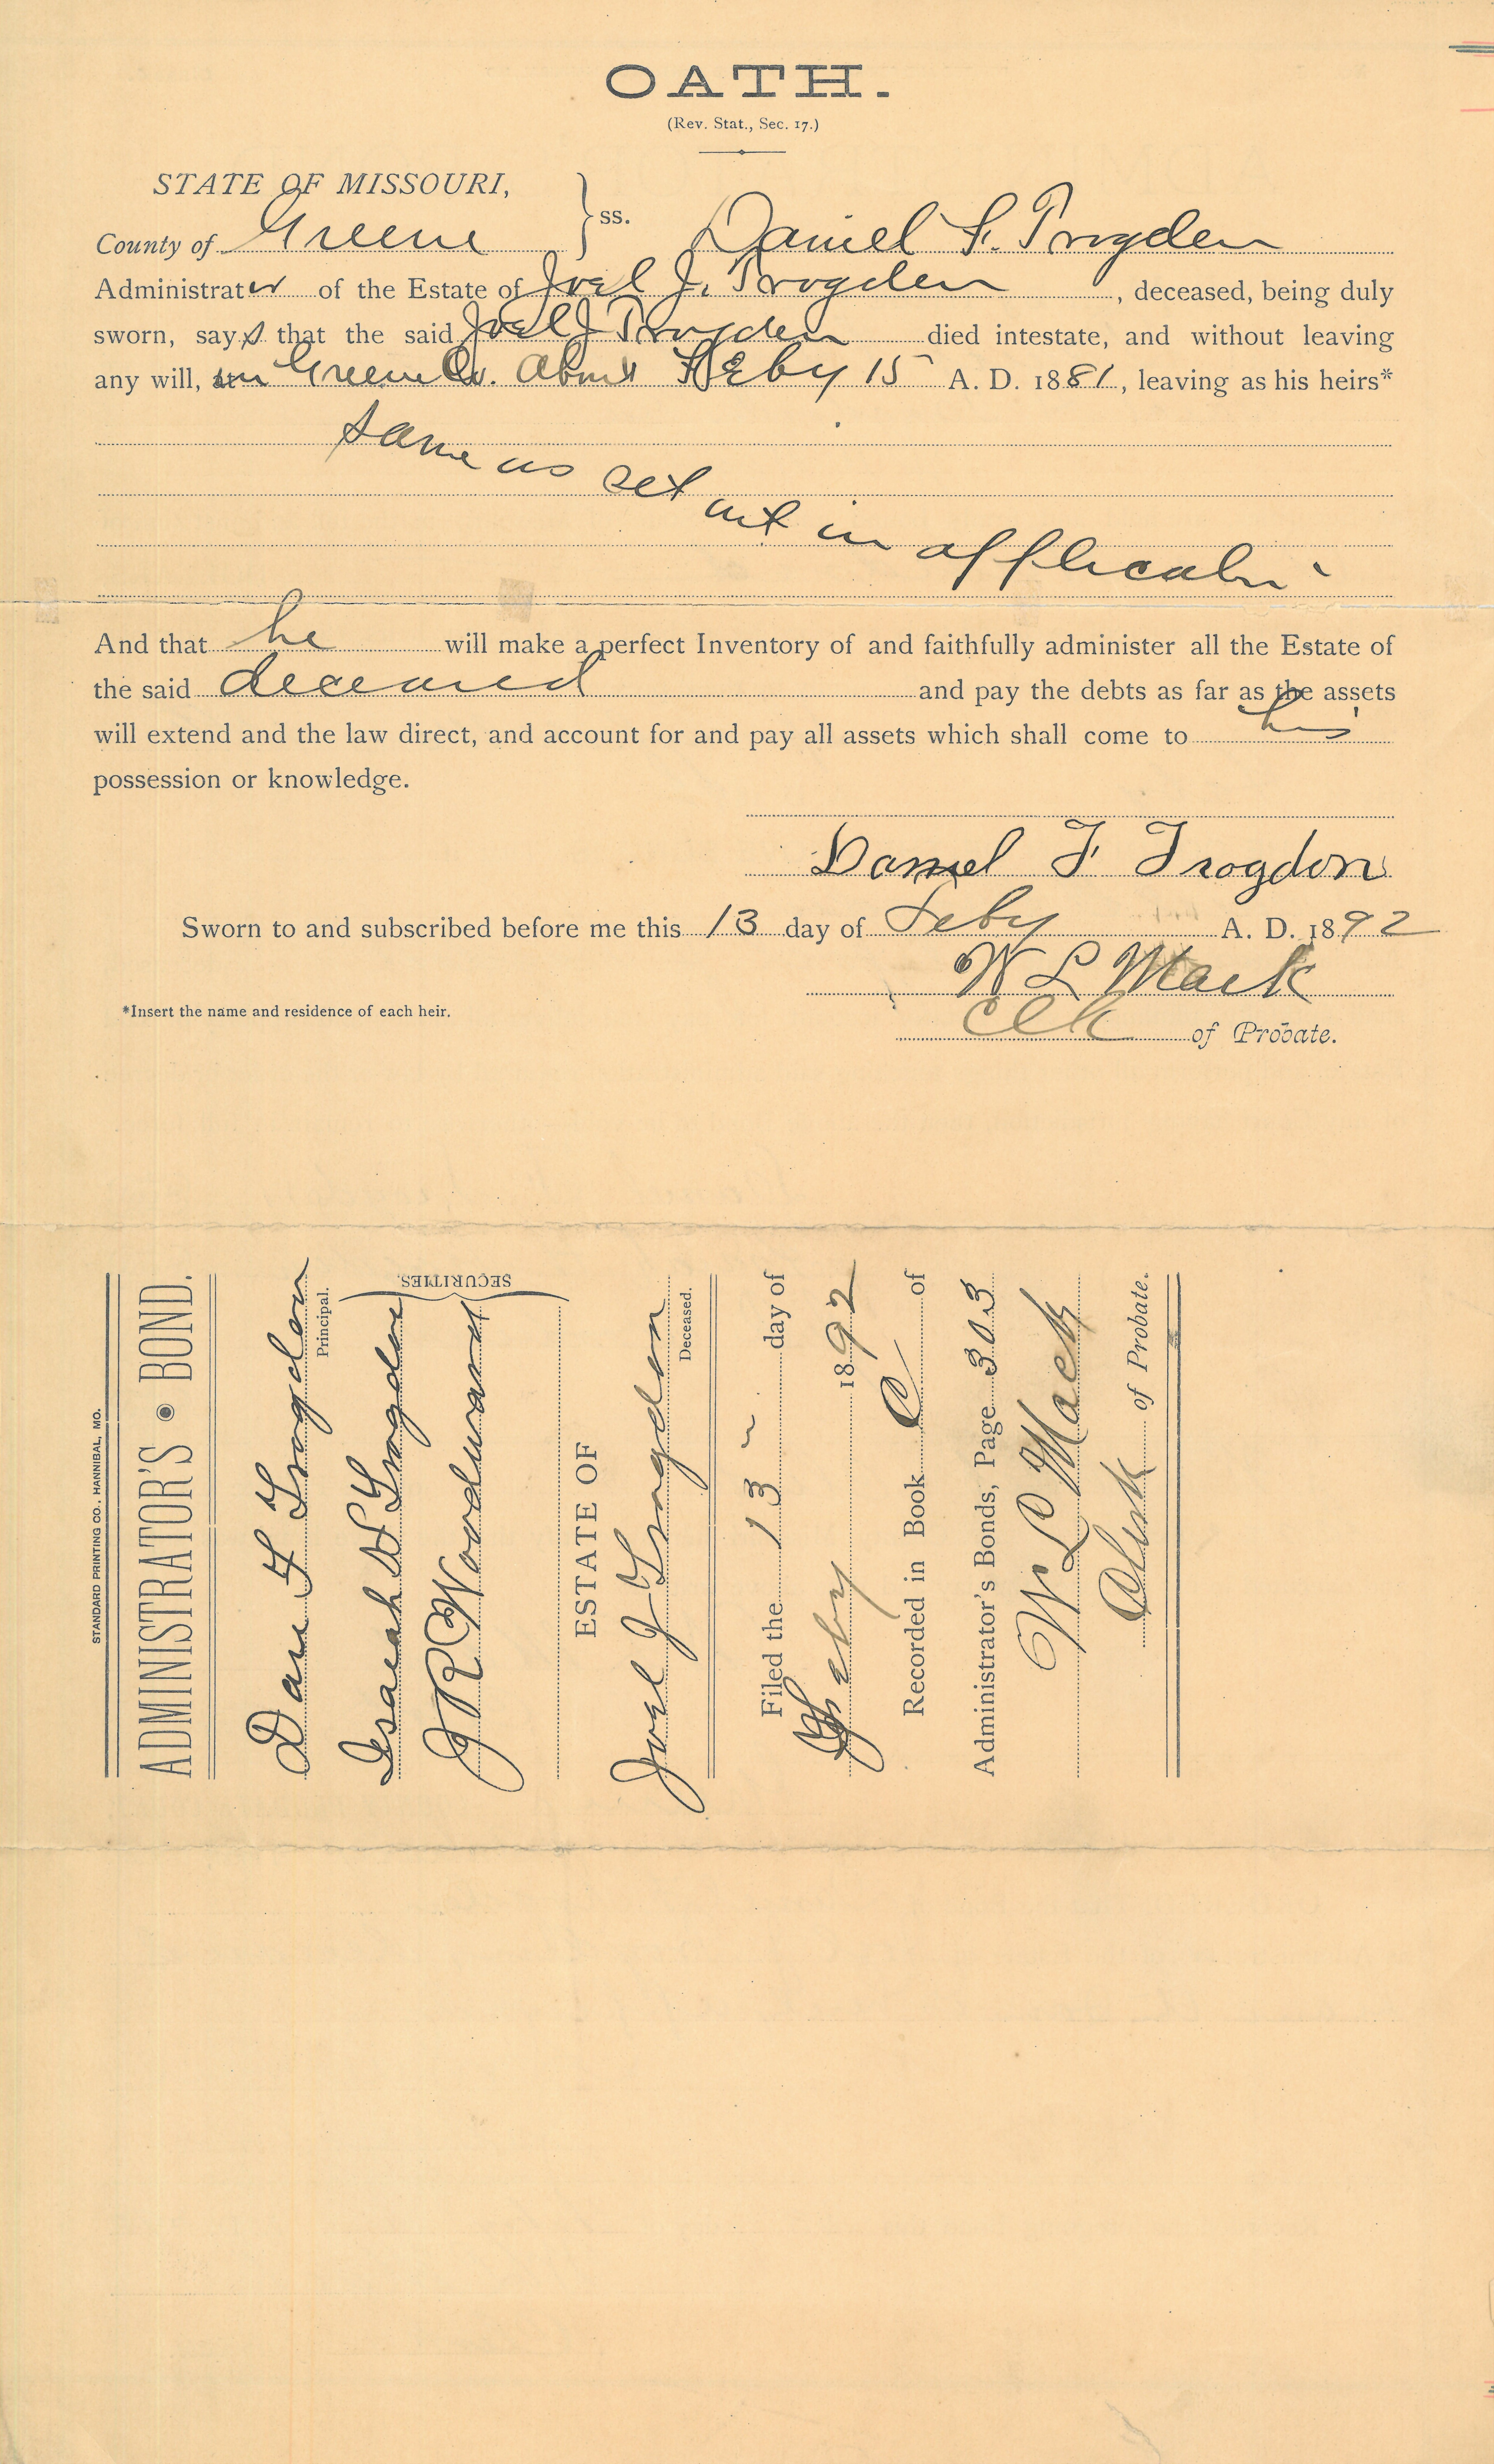 OATH.
(Rev. Stat., Sec. 17.)
STATE OF MISSOURI,
County of Greene } ss. Daniel F. Trogden
Administrator of the Estate of Joel J. Trogden, deceased, being duly
sworn, says that the said Joel J Trogden died intestate, and without leaving
any will, in Greene Co. about Feby 15 A. D. 1881, leaving as his heirs*
same as set out in
And that he will make a perfect Inventory of and faithfully administer all the Estate of
the said deceased and pay the debts as far as the assets
will extend and the law direct, and account for and pay all assets which shall come to his
possession or knowledge.
Daniel F Trogdon
Sworn to and subscribed before me this 13 day of Feby A. D. 1892
W L Mack
*Insert the name and residence of each heir.
Clk of Probate.
STANDARD PRINTING CO., HANNIBAL, MO.
ADMINISTRATOR'S BOND.
Dan F Trogdon
Principal.
Isaeah H Trogdon
J R Woodward
SECURITIES.
ESTATE OF
Joel J Trogdon
Deceased.
Filed the 13 day of
Feby 1892
Recorded in Book C of
Administrator's Bonds, Page 303
W L Mack
Clerk of Probate.